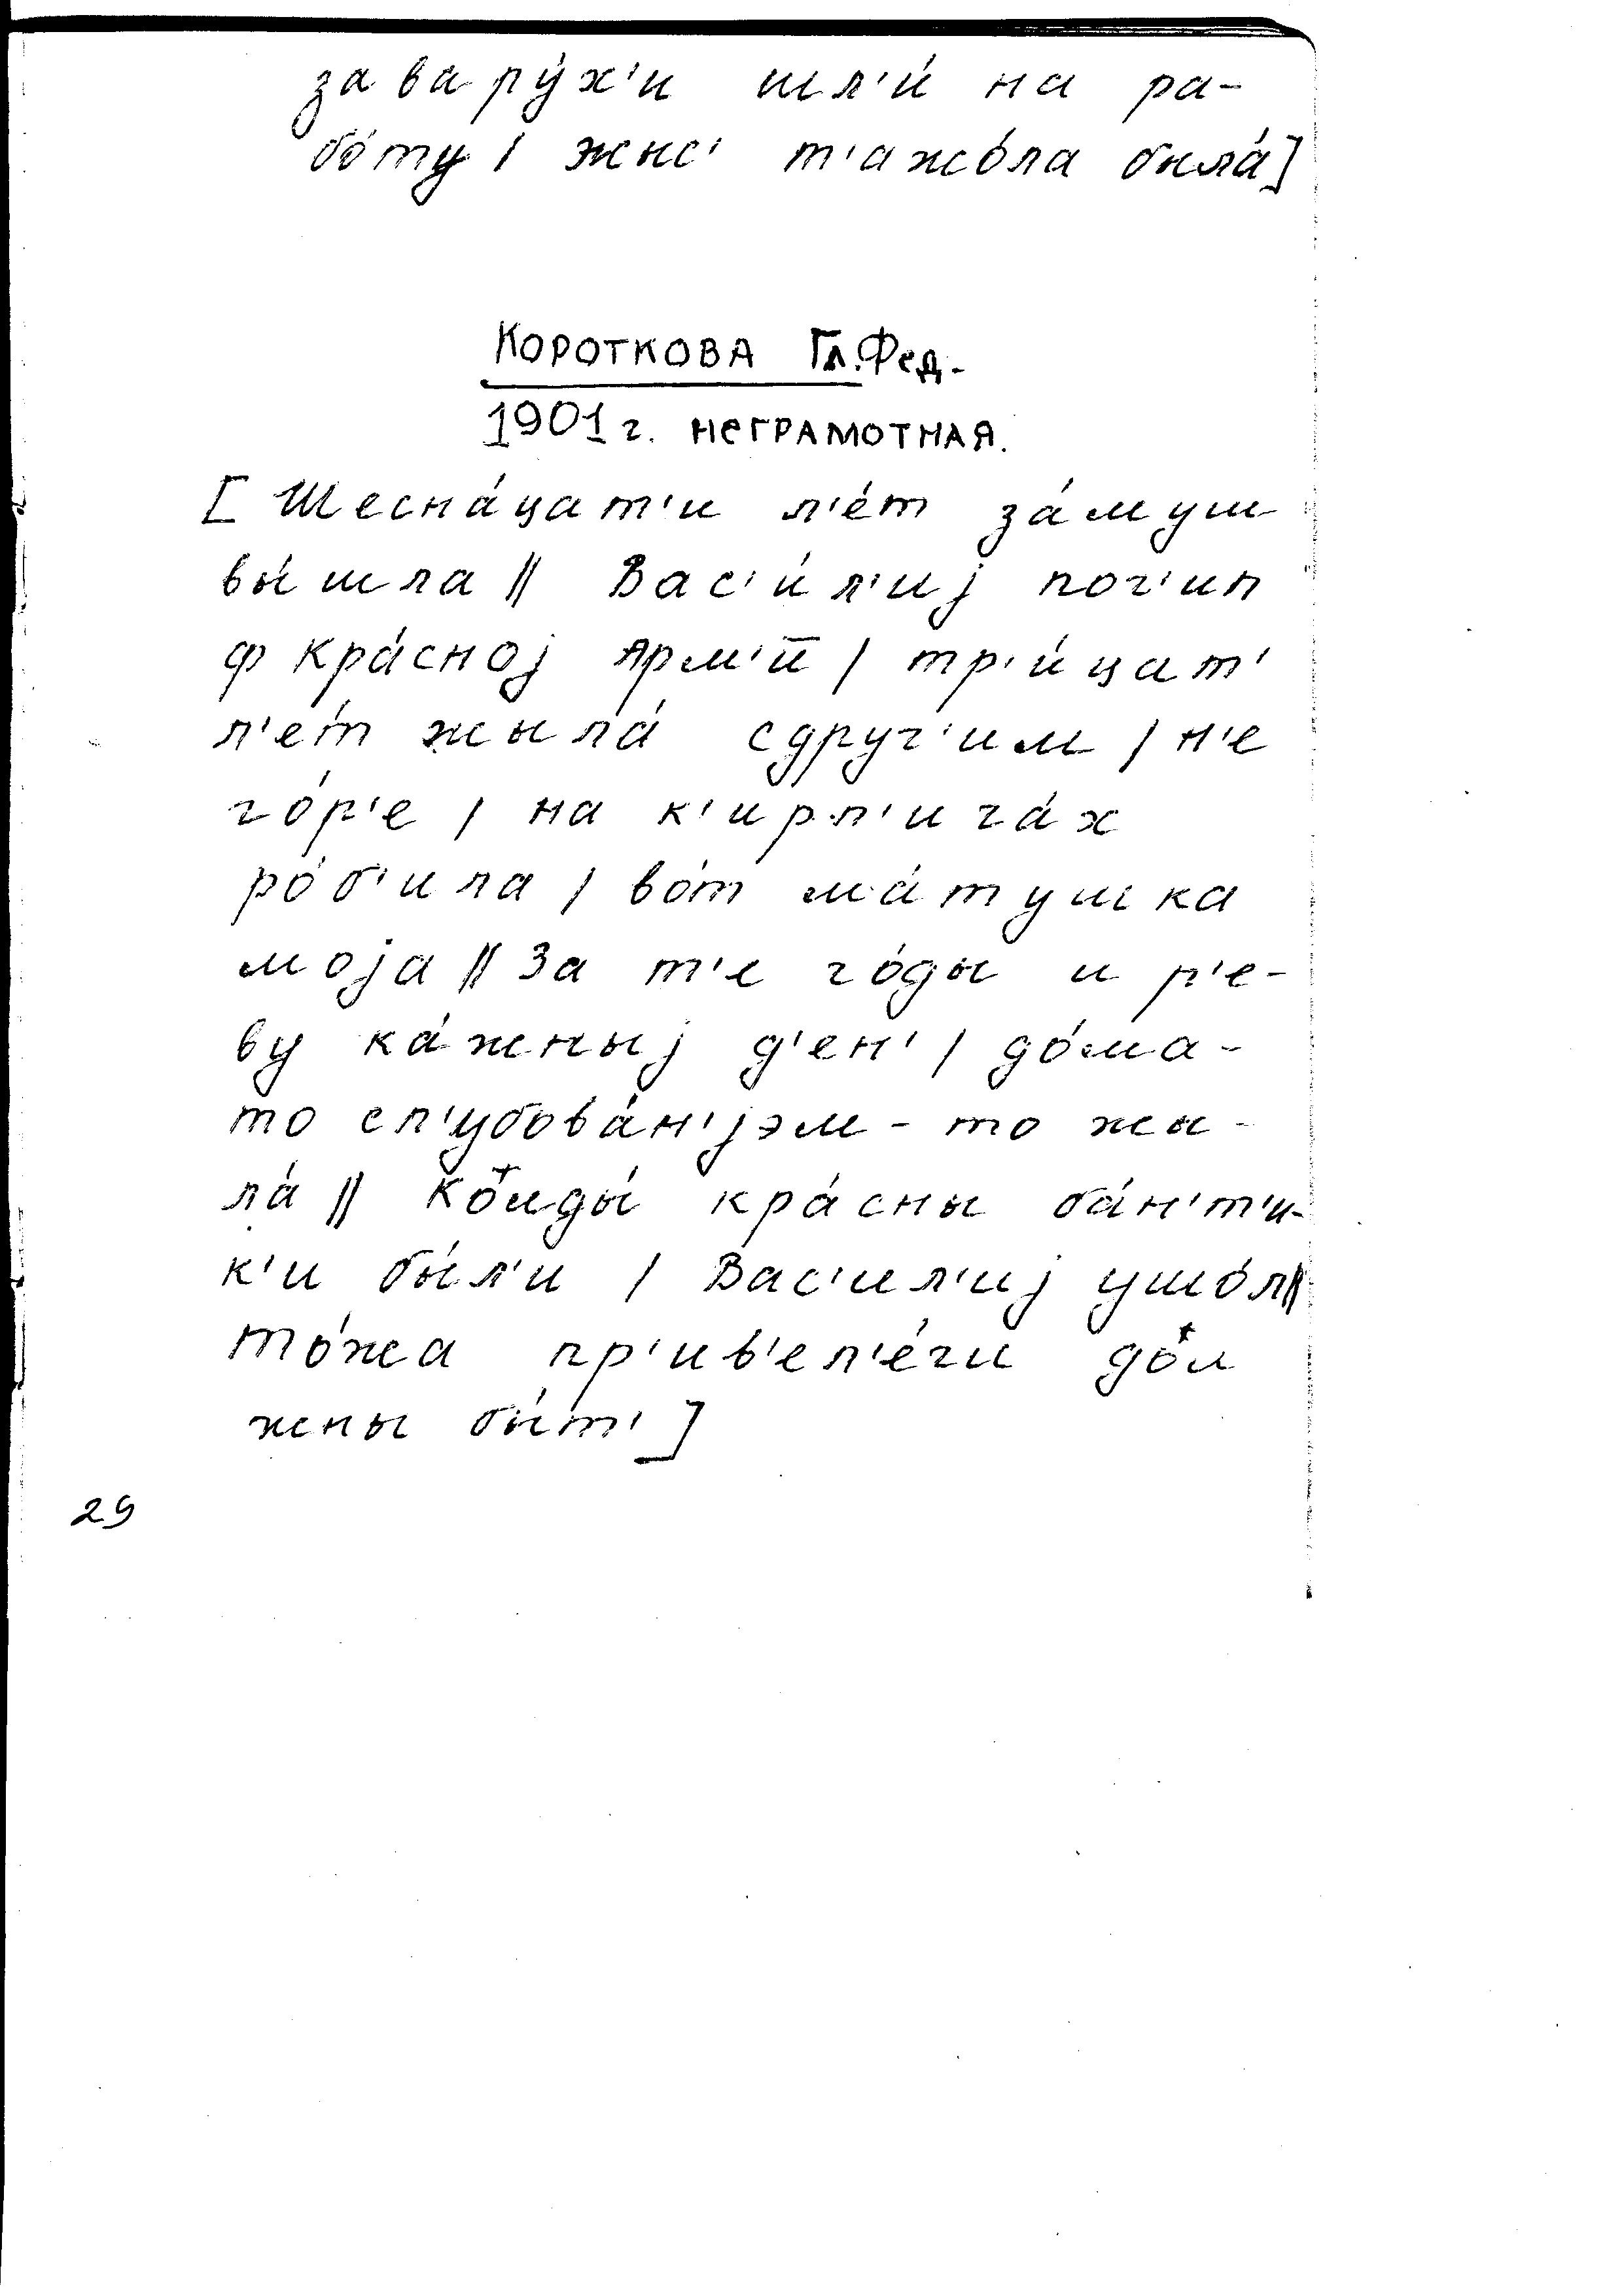 завару́х'и шл'и́ на ра-
бо́ту / жыс' т'ажо́ла была́]
КОРОТКОВА Гл. Фед.
1901 г. неграмотная.
[ Шесна́цат'и л'е́т за́муш
вы́шла || Вас'и́л'иј пог'ип
ф кра́сној Арм'ӣ / тр'и́цат'
л'е́т жыла́ сдруг'им / н'е
го́р'е / на к'ирп'ича́х
ро́б'ила / во́т ма́тушка
моја || За т'е го́ды и р'е-
ву ка́жныј д'ен' / до́ма-
то сл'убова́н'јэм - то жы-
ла́ || Ко̂льды́ кра́сны ба́н'т'и-
к'и бы́л'и / Вас'ил'иј ушо́л ||
то́жа пр'ив'ел'е́ги до̂л
жны бы́т' ]
29